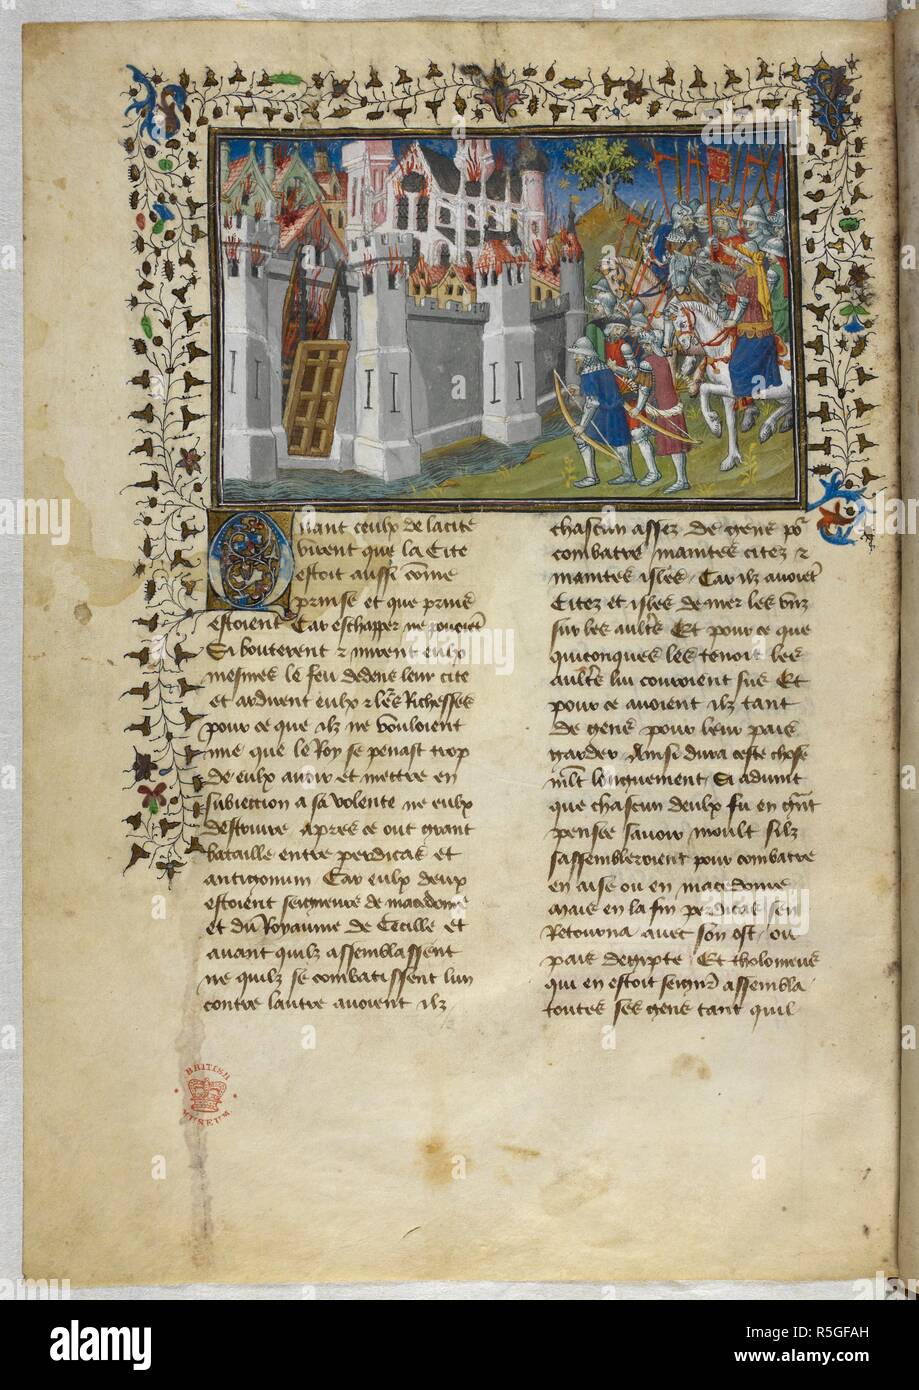 Quant ceulx de la cite
virent que la Cite
estoit aussi come
prinse et que prins
estoient Car eschapper ne povoiet
Si bouterent & mirent eulx
mesmes le feu dedens leur cite
et ardirent eulx & les Richesses
pour ce que ilz ne vouloient
mie que le Roy se penast trop
de eulx avoir et mettre en
subiection a sa volente ne eulx
destruire Apres ce out grant
bataille entre perdicas et
antigonum Car eulx deux
estoient seigneurs de macedoine
et du Royaume de Cecille et
avant quilz assemblassent
ne quilz se combatissent lun
contre lautre avoient ilz
chascun assez de gens po
combatre maintes citez &
maintes isles Car ilz avoiet
Citez et isles de mer les unz
sur les aultres Et pour ce que
quiconques les tenoit les
aultres lui couroient sus Et
pour ce avoient ilz tant
de gens pour leur pais
garder Ainsi dura ceste chose
mlt longuement Si advint
que chascun deulx fu en grat
pensee savoir moult silz
sassembleroient pour combatre
en aise ou en macedoine
mais en la fin perdicas sen
Retourna avec son ost ou
pais degipte Et tholomeus
qui en estoit seignr assembla
toutes ses gens tant quil
BRITISH
MUSEUM
alamy
Image ID: R5GFAH
www.alamy.com